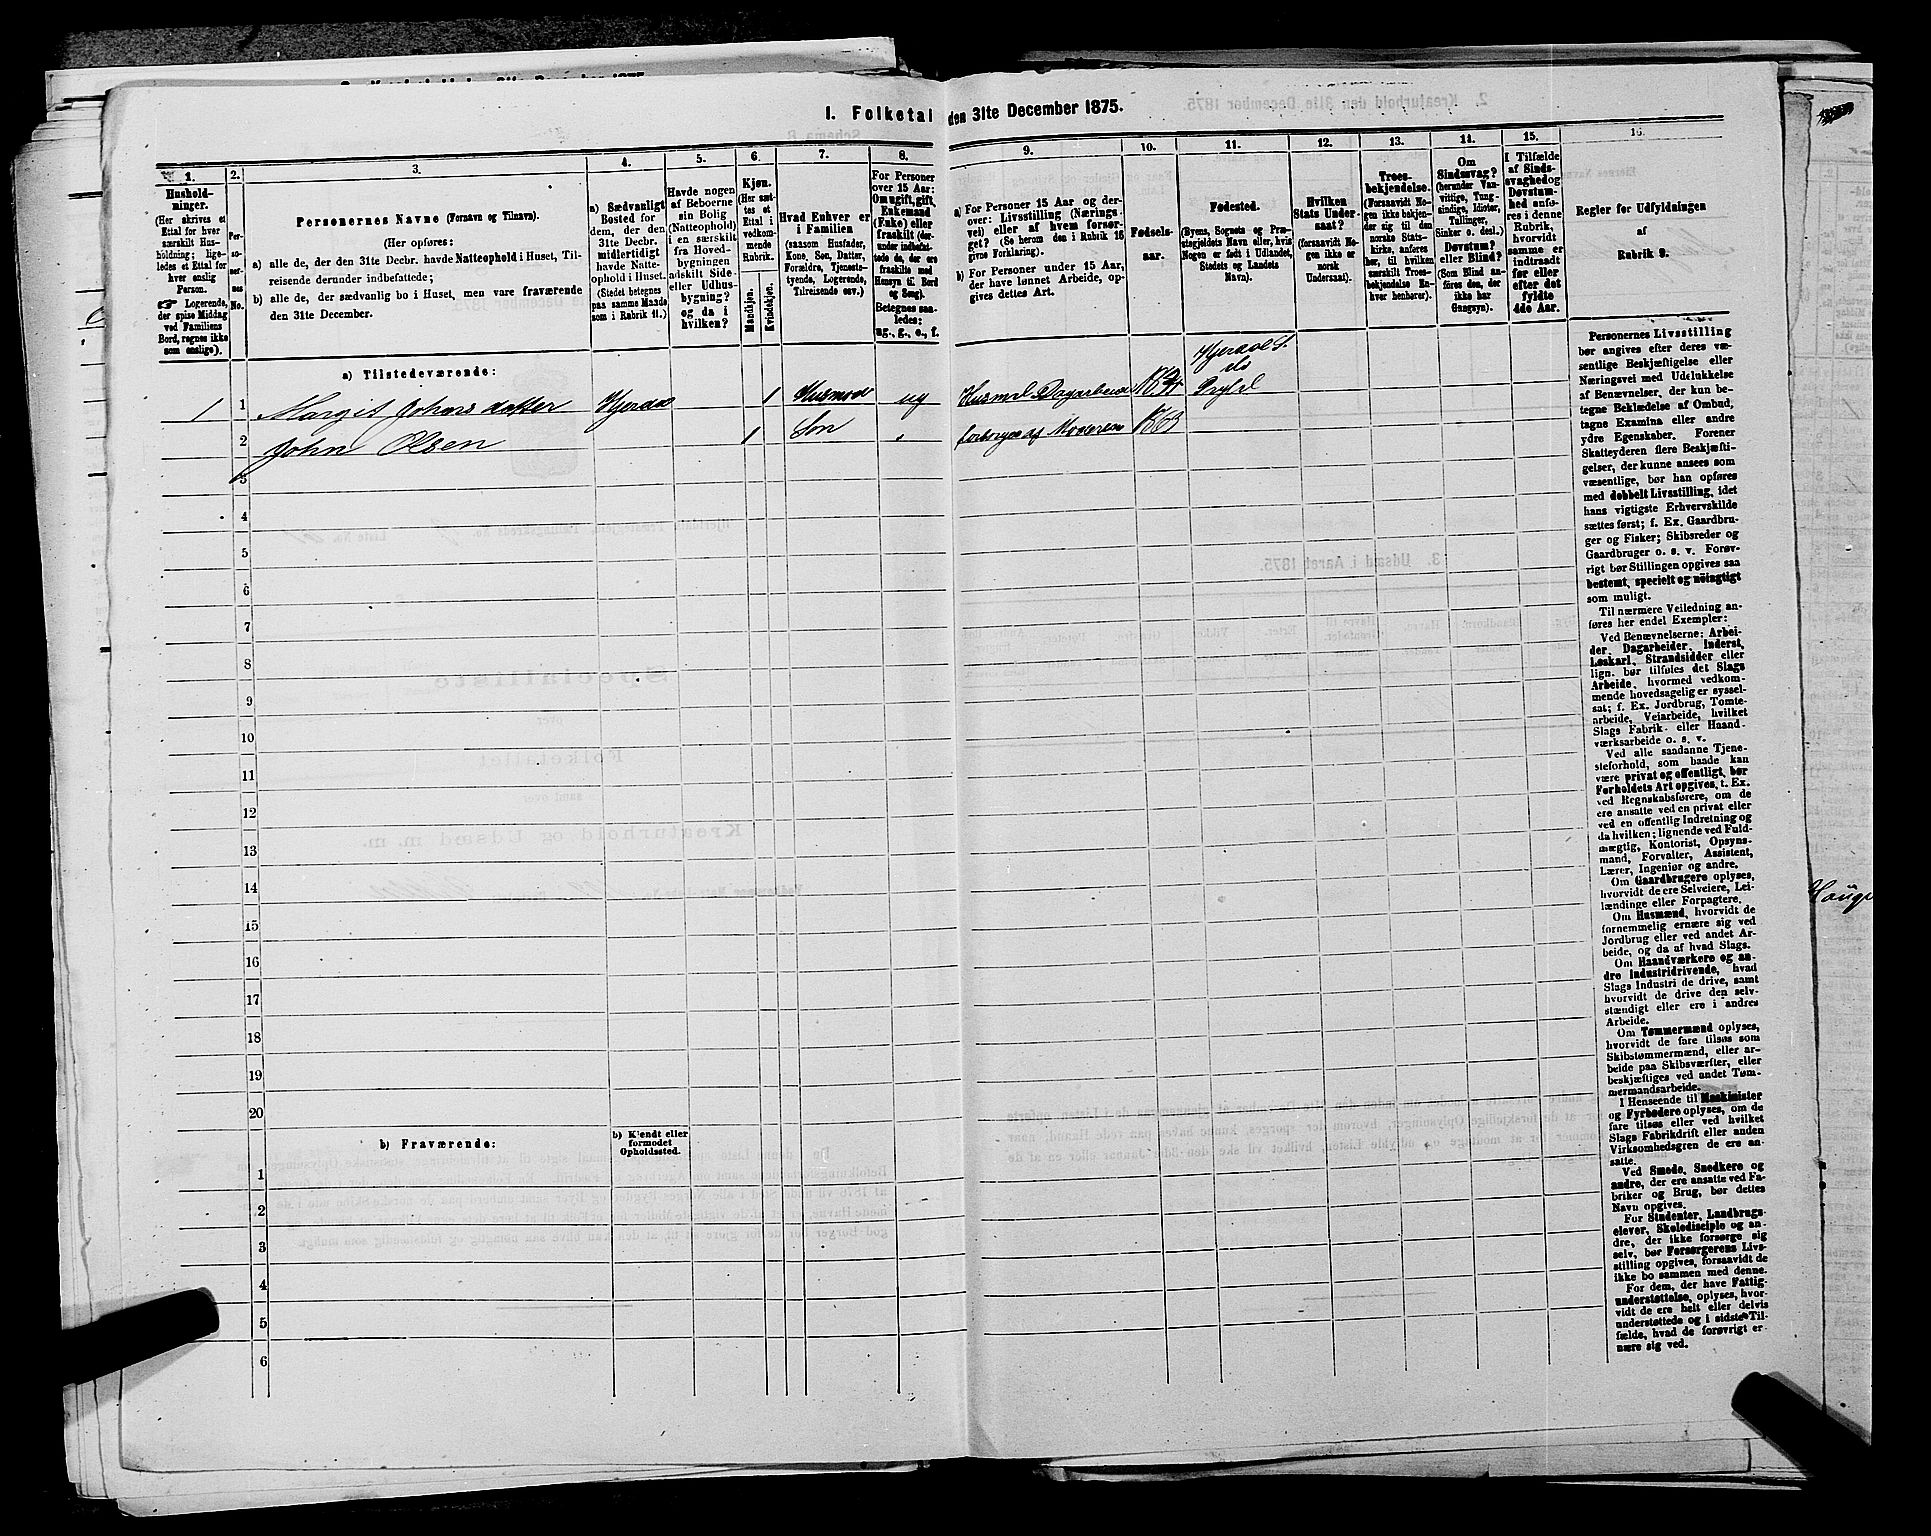 1. Folketal den 31te December 1875.
1.
Hushold-
ninger.
(Her skrives et
Ettal for hver
særskilt Hus-
holdning; lige-
ledes et Ettal for
hver enslig
Person.
☞ Logerende,
der spise Middag
ved Familiens
Bord, regnes ikke
som enslige).
2.
Per-
so-
ner-
nes
No.
3.
Personernes Navne (Fornavn og Tilnavn).
(Her opføres:
a) alle de, der den 31te Decbr. havde Natteophold i Huset, Til-
reisende derunder indbefattede;
b) alle de, der sædvanlig bo i Huset, men vare fraværende
den 31te December.
4.
a) Sædvanligt
Bosted for
dem, der den
31te Decbr.
midlertidigt
havde Natte-
ophold i Huset.
(Stedet betegnes
paa samme Maade
som i Rubrik 11.)
5.
Havde nogen
af Beboerne
sin Bolig
(Natteophold)
i en særskilt
fra Hoved-
bygningen
adskilt Side-
eller Udhus-
bygning?
og da i
hvilken?
6.
Kjøn.
(Her sæt-
tes et
Ettal i
vedkom-
mende
Rubrik.
Mandkjøn.
Kvindekjøn.
7.
Hvad Enhver er
i Familien
(saasom Husfader,
Kone, Søn, Datter,
Forældre, Tjeneste-
tyende, Logerende,
Tilreisende osv.)
8.
For Personer
over 15 Aar:
Om ugift, gift,
Enkemand
(Enke) eller
fraskilt (der-
under indbefat-
tede de, der ere
fraskilte med
Hensyn til Bord
og Seng).
Betegnes saa-
ledes:
ug., g., e., f.
9.
a) For Personer 15 Aar og der-
over: Livsstilling (Nærings-
vei) eller af hvem forsør-
get? (Se herom den i Rubrik 16
givne Forklaring).
b) For Personer under 15 Aar,
der have lønnet Arbeide, op-
gives dettes Art.
10.
Fødsels-
aar.
11.
Fødested.
(Byens, Sognets og Præ-
stegjeldets Navn eller, hvis
Nogen er født i Udlandet,
Stedets og Landets
Navn).
12.
Hvilken
Stats Under-
saat?
(forsaavidt No-
gen ikke er
norsk
Undersaat).
13.
Troes-
bekjendelse.
(Forsaavidt No-
gen ikke bekjen-
der sig til den
norske Stats-
kirke, anføres
her, til hvilken
særskilt Troes-
bekjendelse En-
hver henhører).
14.
Om
Sindssvag?
(herunder Van-
vittige, Tung-
sindige, Idioter,
Tullinger,
Sinker o. desl.)
Døvstum?
eller Blind?
(Som Blind an-
føres den, der
ikke har
Gangsyn).
15.
I Tilfælde
af Sinds-
svaghed og
Døvstum-
hed anfø-
res i denne
Rubrik,
hvorvidt
samme er
indtraadt
før eller
efter det
fyldte
4de Aar.
16.
Regler for Udfyldningen
af
Rubrik 9.
a) Tilstedeværende:
Hjerdal S.
1 1 Margit Johnsdatter Hjerdal 1 Husmod ug
2 John Olsen 1 Søn 1863
3
4
5
6
7
8
9
10
11
12
13
14
15
16
17
18
19
20
b) Fraværende:
b) Kjendt eller
formodet
Opholdssted.
1
2
3
4
5
6
Personernes Livsstilling
bør angives efter deres væ-
sentlige Beskjæftigelse eller
Næringsvei med Udelukkelse
af Benævnelser, der kun be-
tegne Beklædelse af Ombud,
tagne Examina eller andre
ydre Egenskaber. Forener
Skatteyderen flere Beskjæfti-
gelser, der kunne ansees som
væsentlige, bør han opføres
med dobbelt Livsstilling, idet
hans vigtigste Erhvervskilde
sættes først; f. Ex. Gaardbru-
ger og Fisker; Skibsreder og
Gaardbruger o. s. v. Forøv-
rigt bør Stillingen opgives saa
bestemt, specielt og nöiagtigt
som muligt.
Til nærmere Veiledning an-
føres her endel Exempler:
Ved Benævnelserne: Arbei-
der, Dagarbeider, Inderst,
Løskarl, Strandsidder eller
lign. bør tilføies det Slags
Arbeide, hvormed vedkom-
mende hovedsagelig er syssel-
sat; f. Ex. Jordbrug, Tomte-
arbeide, Veiarbeide, hvilket
Slags Fabrik- eller Haand-
værksarbeide o. s. v.
Ved alle saadanne Tjene-
steforhold, som baade kan
være privat og offentligt, bør
Forholdets Art opgives, t. Ex.
ved Regnskabsførere, om de
ere ansatte ved en privat eller
ved en offentlig Indretning og
da hvilken; lignende ved Fuld-
mægtig, Kontorist, Opsyns-
mand, Forvalter, Assistent,
Lærer, Ingeniør og andre.
Om Gaardbrugere oplyses,
hvorvidt de ere Selveiere, Lei-
lændinge eller Forpagtere.
Om Husmænd, hvorvidt de
fornemmelig ernære sig ved
Jordbrug eller ved andet Ar-
beide, og da af hvad Slags.
Om Haandværkere og an-
dre Industridrivende, hvad
Slags Industri de drive, samt
hvorvidt de drive den selv-
stændigt eller ere i andres
Arbeide.
Om Tømmermænd oplyses,
hvorvidt de fare tilsøs som
Skibstømmermænd, eller ar-
beide paa Skibsværfter, eller
beskjæftiges ved andet Tøm-
mermandsarbeide.
I Henseende til Maskinister
og Fyrbødere oplyses, om de
fare tilsøs eller ved hvilket
Slags Fabrikdrift eller anden
Virksomhedsgren de ere an-
satte.
Ved Smede, Snedkere og
andre, der ere ansatte ved Fa-
briker og Brug, bør dettes
Navn opgives.
For Studenter, Landbrugs-
elever, Skoledisciple og an-
dre, der ikke forsørge sig
selv, bør Forsørgerens Livs-
stilling opgives, forsaavidt de
ikke bo sammen med denne.
For dem, der have Fattig-
understøttelse, oplyses, hvor-
vidt de ere helt eller delvis
understøttede og i sidste Til-
fælde, hvad de forøvrigt er-
nære sig ved.